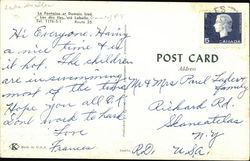 La Fontaine et Domaine Ideal
Lac des Iles, Labelle,
Tel. Route 35
Hi Everyone. Having
a nice time & is
it hot. The children
are in swimming
most of the time
Hope you all O.K.
Don't work to hard
Love
Frances
POST CARD
Address
Mr & Mrs Paul
family
Richard Rd.
Skaneateles
N.Y
R.D. USA
5
CANADA